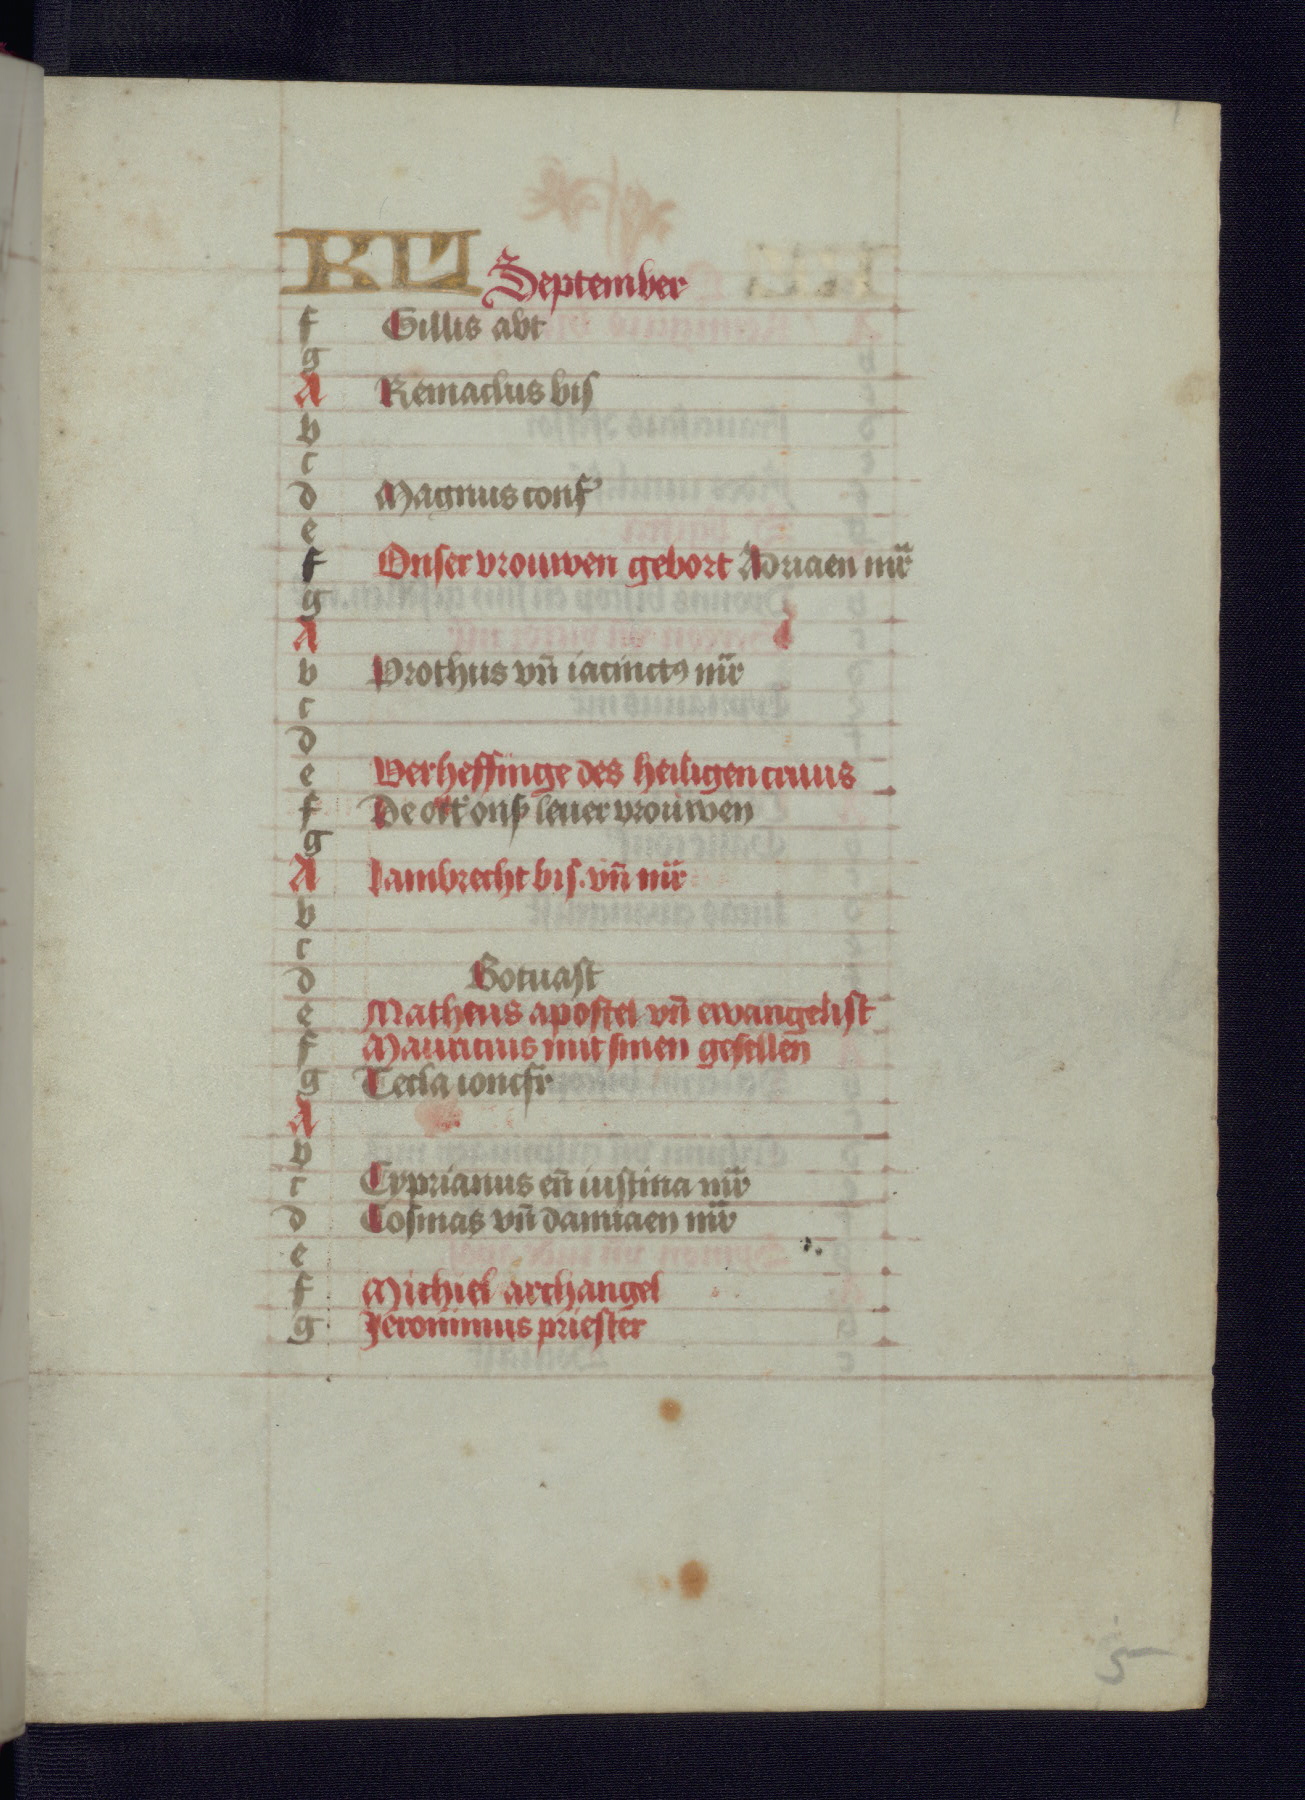 KL September
f Gillis abt
g
A Remaclus bis
b
c
d Magnus conf'
e
f Onser vrouwen gebort Adriaen mr̄
g
A
b Prothus vn̄ iacinctꝰ mr̄
c
d
e Verheffinge des heiligen cruus
f De oct' onß lieuer vrouwen
g
A Lambrecht bis. vn̄ mr̄
b
c
d Botuast
e Matheus apostel vn̄ ewangelist
f Mauricius mit sinen gesellen
g Tecla ioncfr
A
b
c Cyprianus en̄ iustina mr̄
d Cosmas vn̄ damiaen mr̄
e
f Michiel archangel
g Jeronimus priester
5